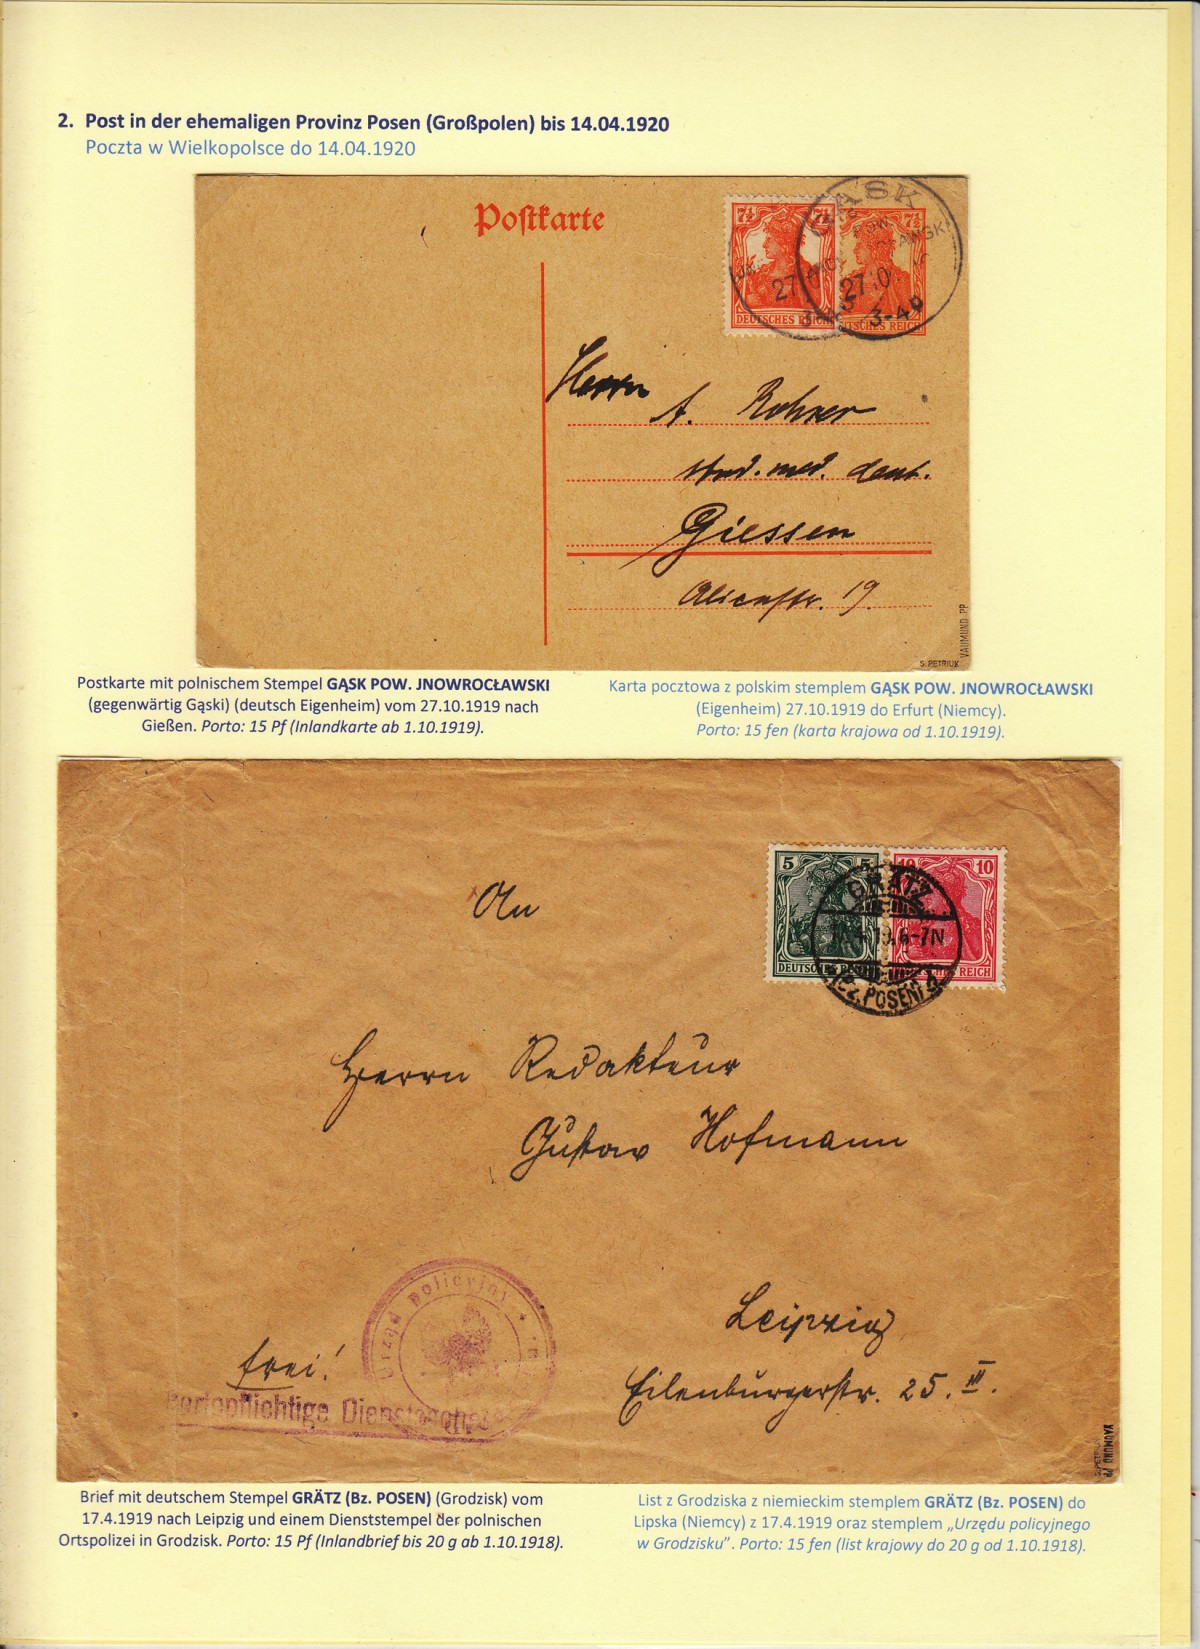 2. Post in der ehemaligen Provinz Posen (Großpolen) bis 14.04.1920
Poczta w Wielkopolsce do 14.04.1920
Postkarte
GĄSK
POW.
7½ 7½ 7½
27 27.10
3-4
3-4P
DEUTSCHES REICH
TSCHES REICH
Herrn
A. Rohrer
stud. med. dent.
Giessen
Alicestr. 19.
S. PETRIUK
VAUMUND PP
Postkarte mit polnischem Stempel GĄSK POW. JNOWROCŁAWSKI
(gegenwärtig Gąski) (deutsch Eigenheim) vom 27.10.1919 nach
Gießen. Porto: 15 Pf (Inlandkarte ab 1.10.1919).
Karta pocztowa z polskim stemplem GĄSK POW. JNOWROCŁAWSKI
(Eigenheim) 27.10.1919 do Erfurt (Niemcy).
Porto: 15 fen (karta krajowa od 1.10.1919).
5 5 10 10
GRÄTZ
19.6-7N
DEUTSCHES REICH
(BZ. POSEN)
An
Herrn Redakteur
Gustav Hofmann
Leipzig
Eilenburgerstr. 25. III.
Urząd policyjny
frei!
portopflichtige Dienstsache
S. PETRIUK
VAUMUND PP
Brief mit deutschem Stempel GRÄTZ (Bz. POSEN) (Grodzisk) vom
17.4.1919 nach Leipzig und einem Dienststempel der polnischen
Ortspolizei in Grodzisk. Porto: 15 Pf (Inlandbrief bis 20 g ab 1.10.1918).
List z Grodziska z niemieckim stemplem GRÄTZ (Bz. POSEN) do
Lipska (Niemcy) z 17.4.1919 oraz stemplem „Urzędu policyjnego
w Grodzisku”. Porto: 15 fen (list krajowy do 20 g od 1.10.1918).